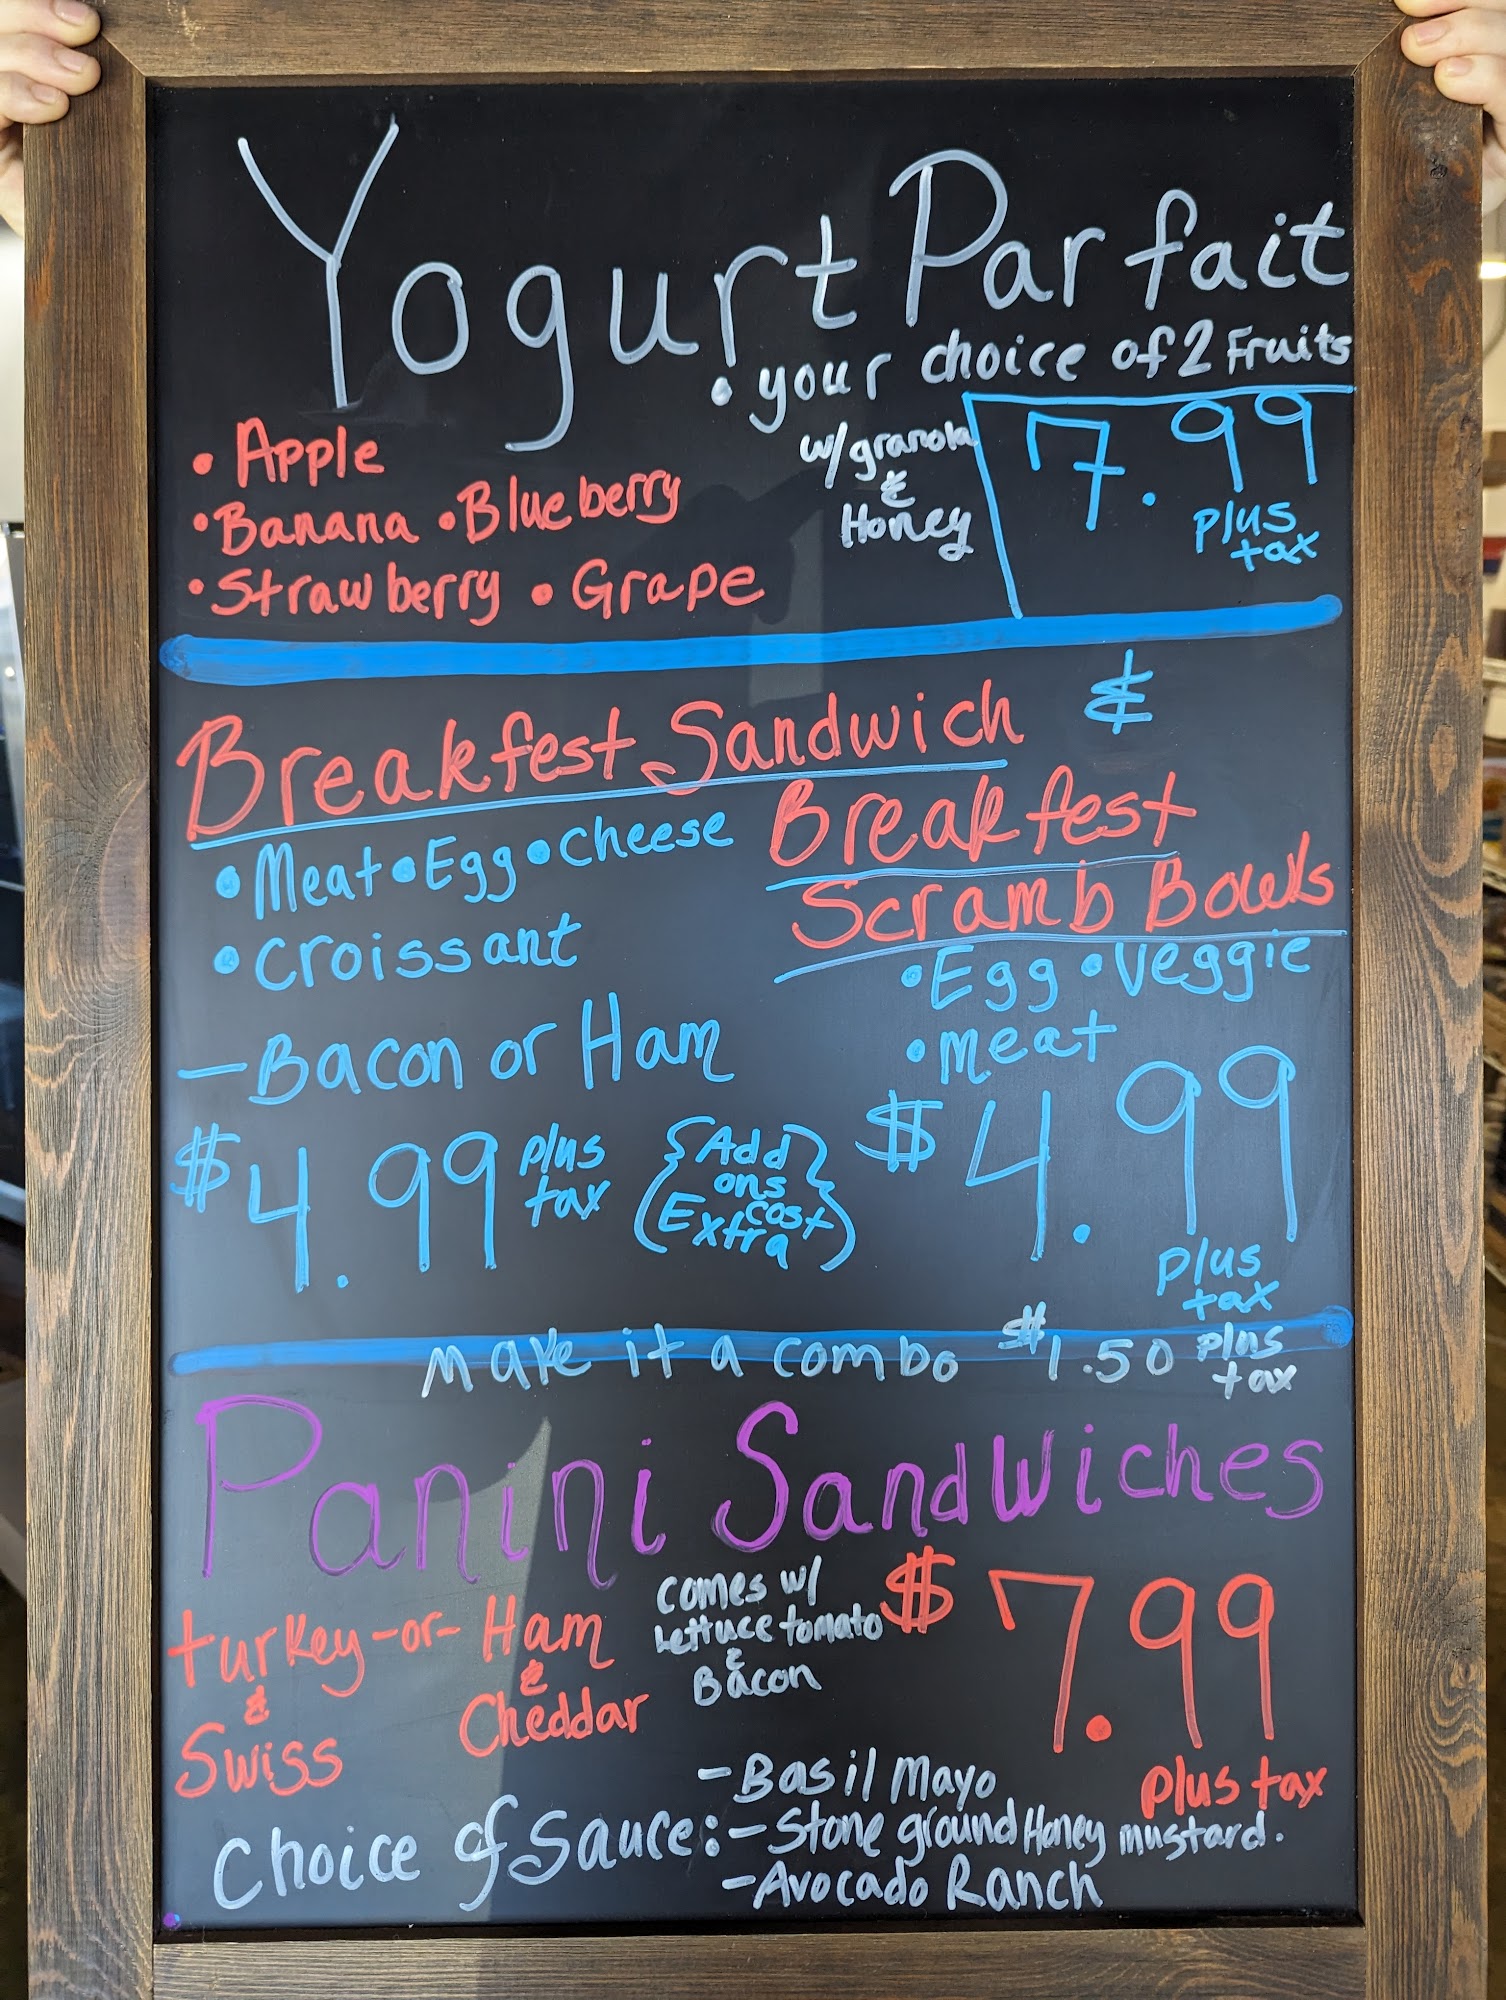 Yogurt Parfait
• your choice of 2 Fruits
w/ granola
&
Honey
7.99
plus
tax
• Apple
• Banana • Blueberry
• Strawberry • Grape
Breakfest Sandwich
&
• Meat • Egg • Cheese
• Croissant
— Bacon or Ham
$4.99 plus
tax
{Add}
ons
(Extra cost)
Breakfest
Scramb Bowls
• Egg • Veggie
• meat
$4.99
plus
tax
Make it a combo $1.50 plus
tax
Panini Sandwiches
turkey -or- Ham
&
Swiss
&
Cheddar
comes w/
Lettuce tomato
&
Bacon
$7.99
plus tax
Choice of Sauce: - Basil Mayo
- Stone ground Honey mustard.
- Avocado Ranch